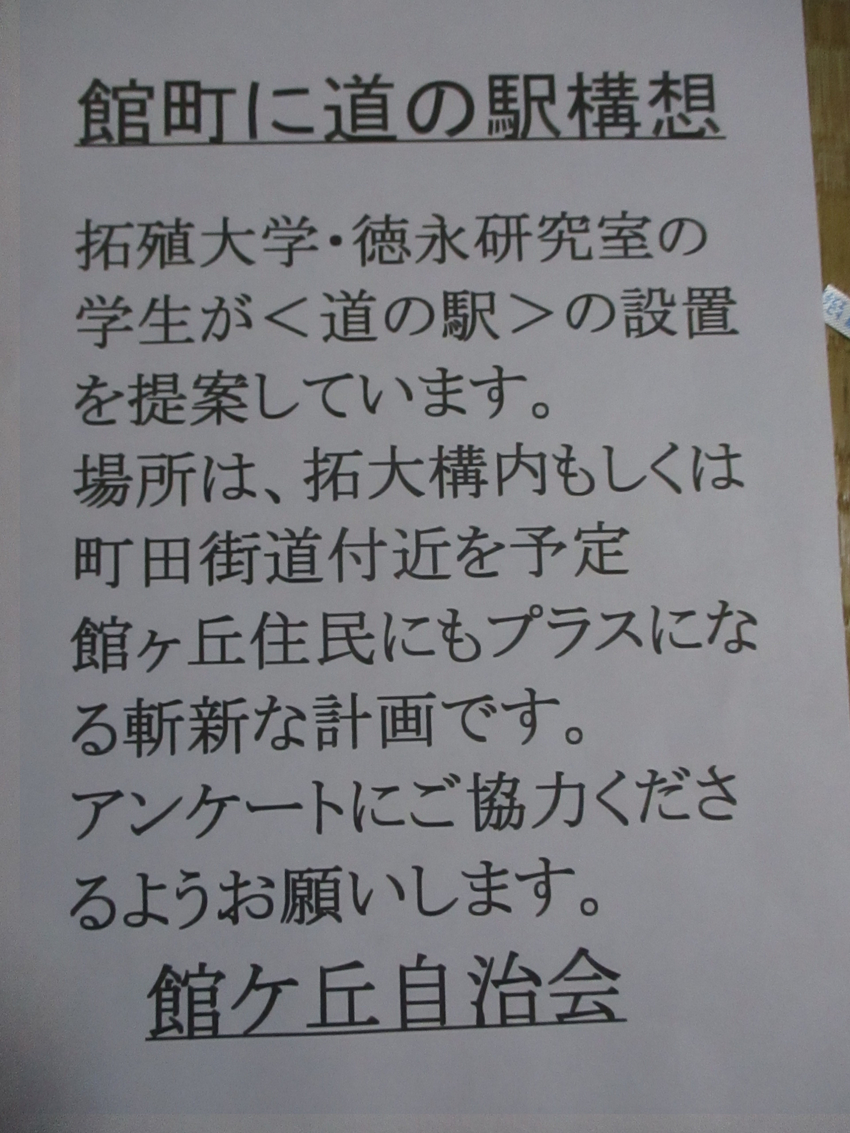 館町に道の駅構想
拓殖大学・徳永研究室の
学生が＜道の駅＞の設置
を提案しています。
場所は、拓大構内もしくは
町田街道付近を予定
館ヶ丘住民にもプラスにな
る斬新な計画です。
アンケートにご協力くださ
るようお願いします。
館ケ丘自治会